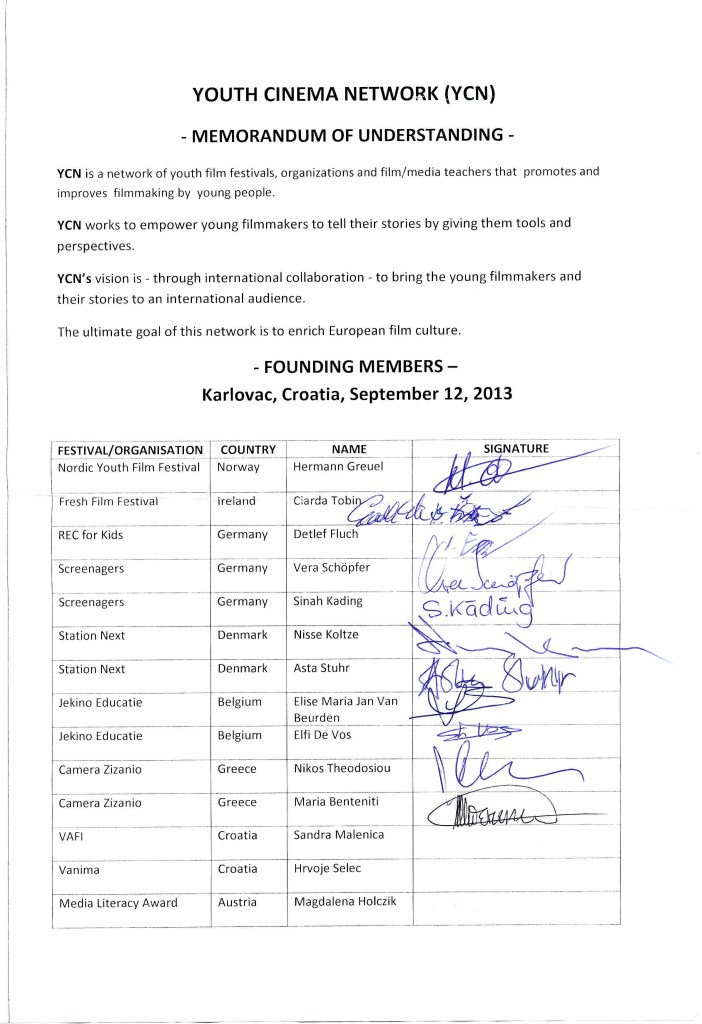 YOUTH CINEMA NETWORK (YCN)
- MEMORANDUM OF UNDERSTANDING -
YCN is a network of youth film festivals, organizations and film/media teachers that promotes and
improves filmmaking by young people.
YCN works to empower young filmmakers to tell their stories by giving them tools and
perspectives.
YCN's vision is - through international collaboration - to bring the young filmmakers and
their stories to an international audience.
The ultimate goal of this network is to enrich European film culture.
- FOUNDING MEMBERS –
Karlovac, Croatia, September 12, 2013
FESTIVAL/ORGANISATION COUNTRY NAME SIGNATURE
Nordic Youth Film Festival Norway Hermann Greuel
Fresh Film Festival Ireland Ciarda Tobin
REC for Kids Germany Detlef Fluch
Screenagers Germany Vera Schöpfer Vera Schöpfer
Screenagers Germany Sinah Kading S. Käding
Station Next Denmark Nisse Koltze
Station Next Denmark Asta Stuhr Asta Stuhr
Jekino Educatie Belgium Elise Maria Jan Van
Beurden
Jekino Educatie Belgium Elfi De Vos
Camera Zizanio Greece Nikos Theodosiou
Camera Zizanio Greece Maria Benteniti
VAFI Croatia Sandra Malenica
Vanima Croatia Hrvoje Selec
Media Literacy Award Austria Magdalena Holczik